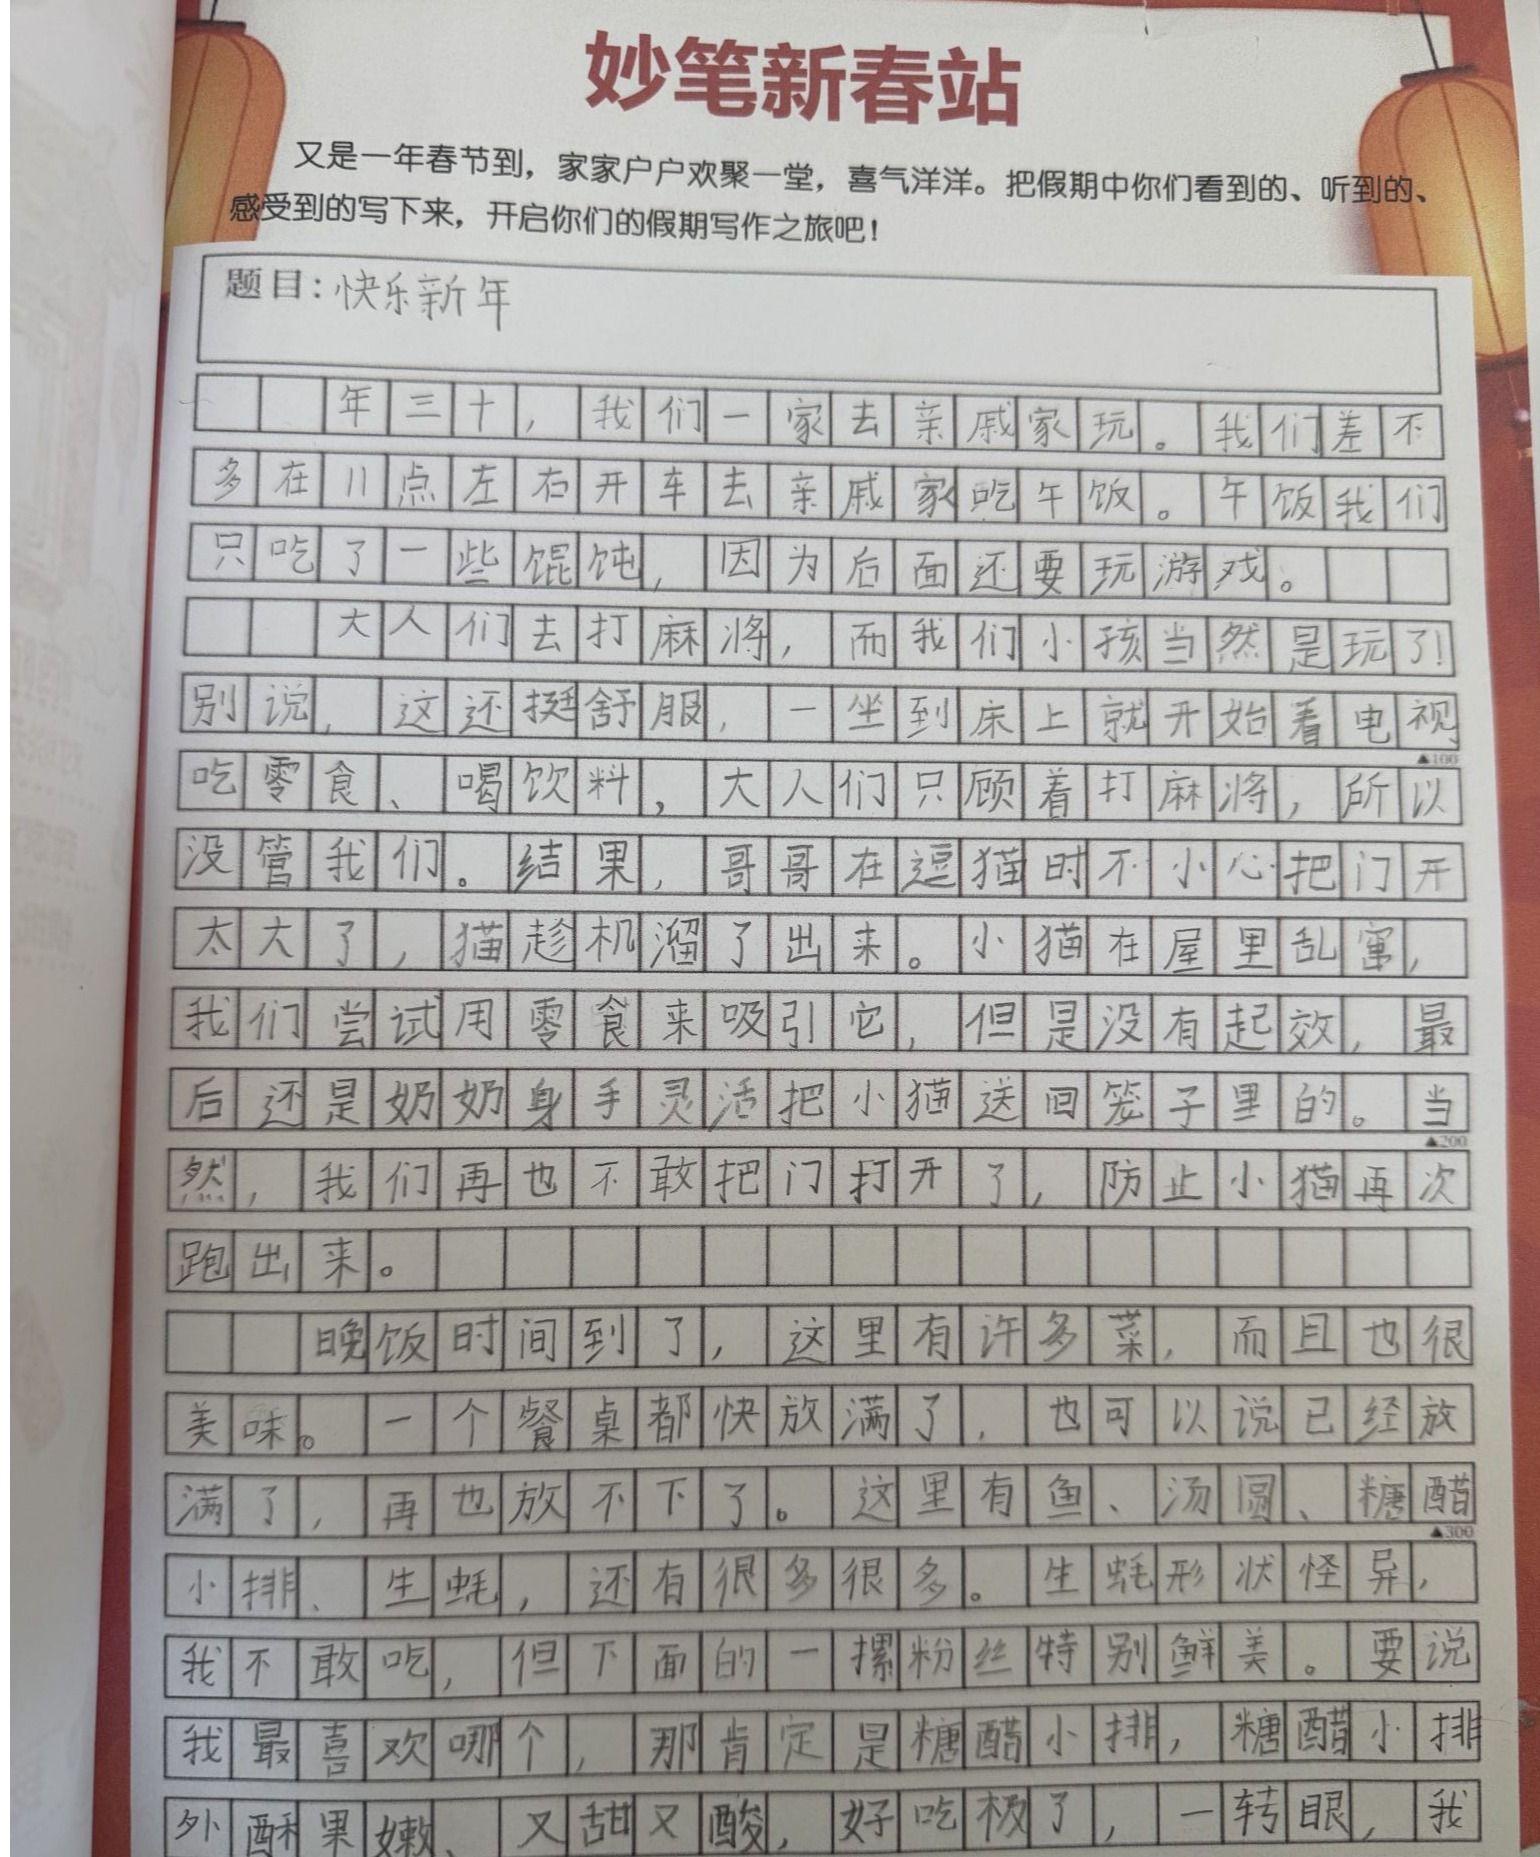 妙笔新春站
又是一年春节到，家家户户欢聚一堂，喜气洋洋。把假期中你们看到的、听到的、
感受到的写下来，开启你们的假期写作之旅吧！
题目：快乐新年
年三十，我们一家去亲戚家玩。我们差不
多在11点左右开车去亲戚家吃午饭。午饭我们
只吃了一些馄饨，因为后面还要玩游戏。
大人们去打麻将，而我们小孩当然是玩了！
别说，这还挺舒服，一坐到床上就开始看电视
▲100
吃零食、喝饮料，大人们只顾着打麻将，所以
没管我们。结果，哥哥在逗猫时不小心把门开
太大了，猫趁机溜了出来。小猫在屋里乱窜，
我们尝试用零食来吸引它，但是没有起效，最
后还是奶奶身手灵活把小猫送回笼子里的。当
▲200
然，我们再也不敢把门打开了，防止小猫再次
跑出来。
晚饭时间到了，这里有许多菜，而且也很
美味。一个餐桌都快放满了，也可以说已经放
满了，再也放不下了。这里有鱼、汤圆、糖醋
▲300
小排、生蚝，还有很多很多。生蚝形状怪异，
我不敢吃，但下面的一摞粉丝特别鲜美。要说
我最喜欢哪个，那肯定是糖醋小排，糖醋小排
外酥果嫩、又甜又酸，好吃极了，一转眼，我